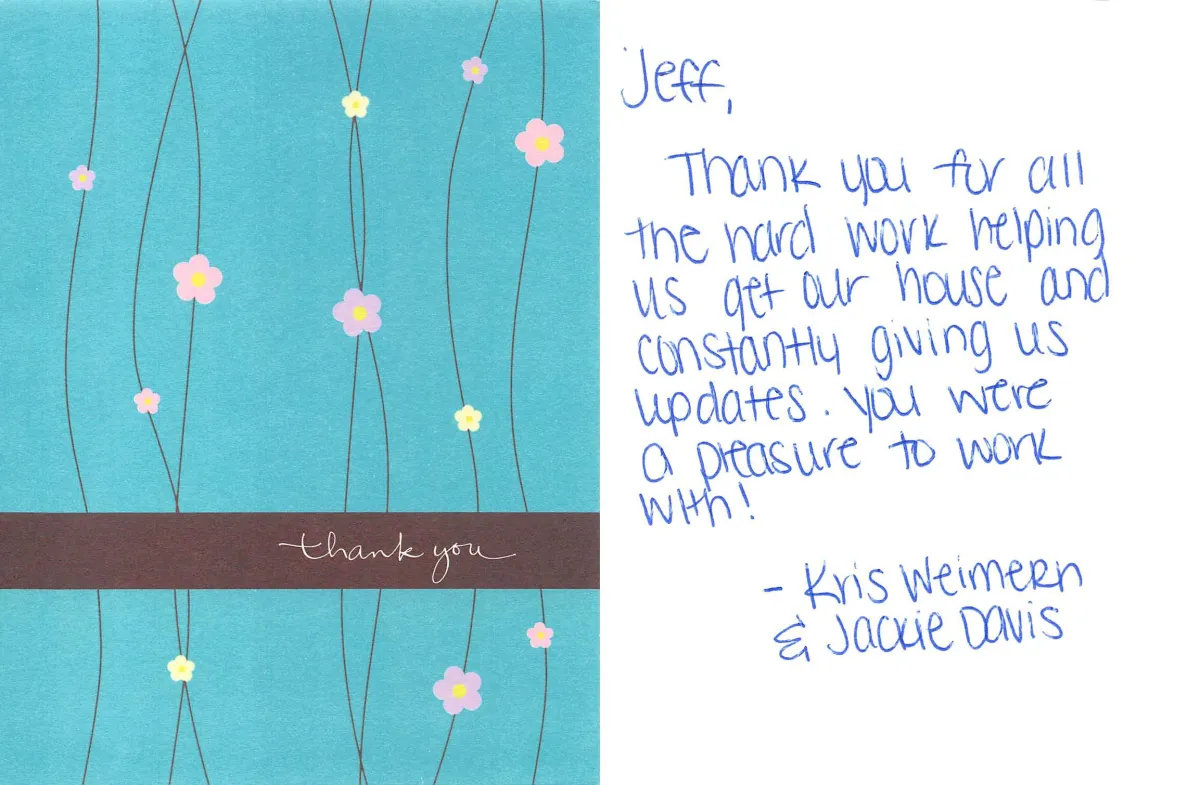 thank you
Jeff,
Thank you for all
the hard work helping
us get our house and
constantly giving us
updates. You were
a pleasure to work
with!
- Kris Weimern
& Jackie Davis